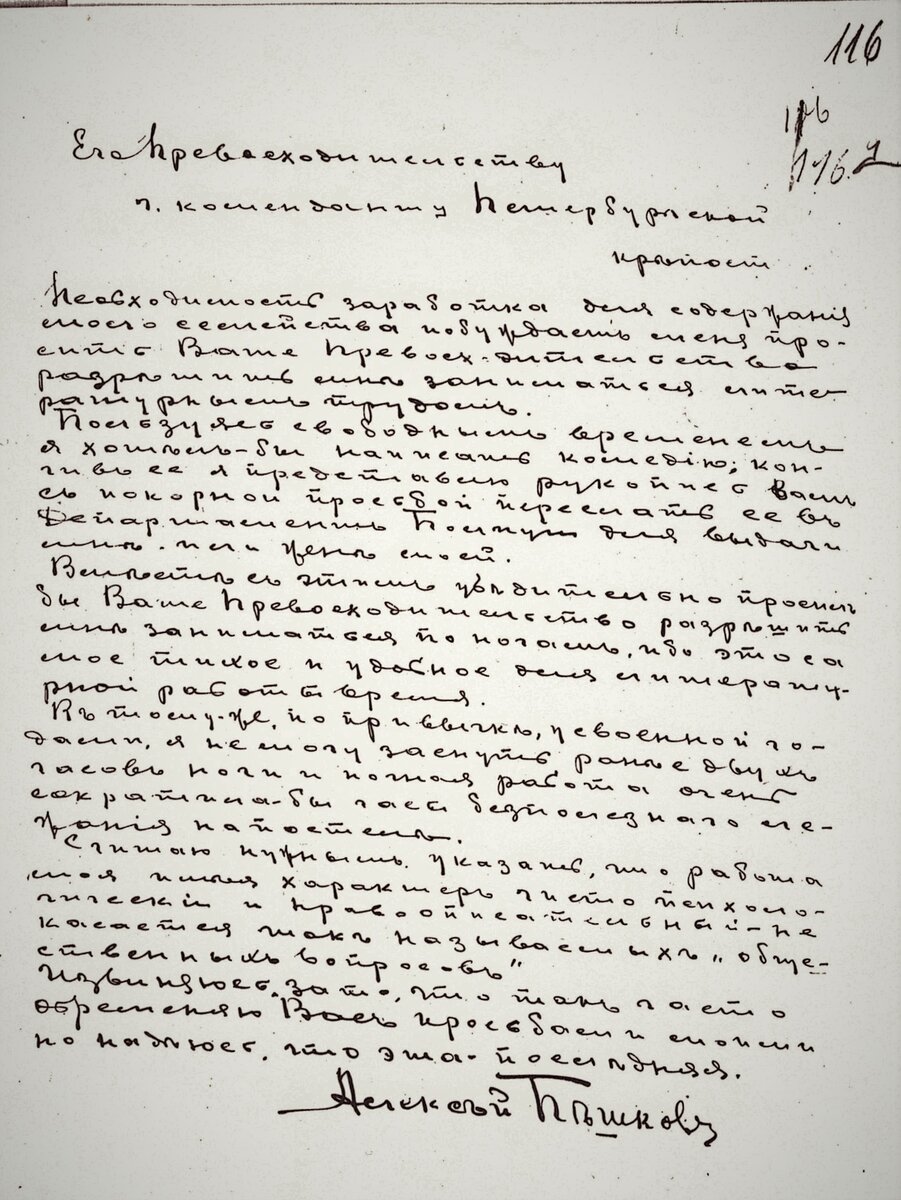 116
116.
Его Превосходительству
г. коменданту Петербургской
крѣпост
Необходимость заработка для содержанія
моего семейства побуждаетъ меня про-
сить Ваше Превосходительство
разрѣшить мнѣ заниматься лите
ратурнымъ трудомъ.
Пользуясь свободнымъ временемъ
я хотѣлъ-бы написать комедію; кон-
чивъ ее я представлю рукопись Вамъ
съ покорной просьбой переслать ее въ
Департаментъ Полиціи для выдачи
женѣ моей.
Вмѣстѣ съ этимъ убѣдительно просилъ
бы Ваше Превосходительство разрѣшить
мнѣ заниматься по ночамъ, ибо это са
мое тихое и удобное для литерату-
рной работы время.
Къ тому-же, по привычкѣ, усвоенной го-
дами, я не могу заснуть ранѣе двухъ
часовъ ночи и ночная работа очень
сократила-бы часы безполезнаго ле-
жанія на постелѣ.
Считаю нужнымъ указать, что работа
моя имѣя характеръ чисто психоло-
гическій и нравоописательный-не
касается такъ называемыхъ „обще-
ственныхъ вопросовъ"
Извиняюсь за то, что такъ часто
обременяю Васъ просьбами моими
но надѣюсь, что эта-послѣдняя.
Алексѣй Пѣшковъ